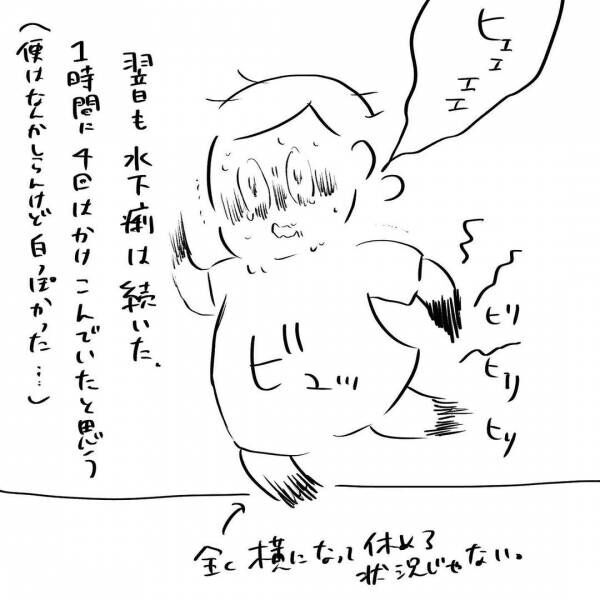 ヒェェェェ
翌日も水下痢は続いた.
1時間に4回はかけこんでいたと思う
(便はなんかしらんけど白っぽかった…)
ビュッッ
ヒリ
ヒリ
ヒリ
全く横になって休める
状況じゃない。